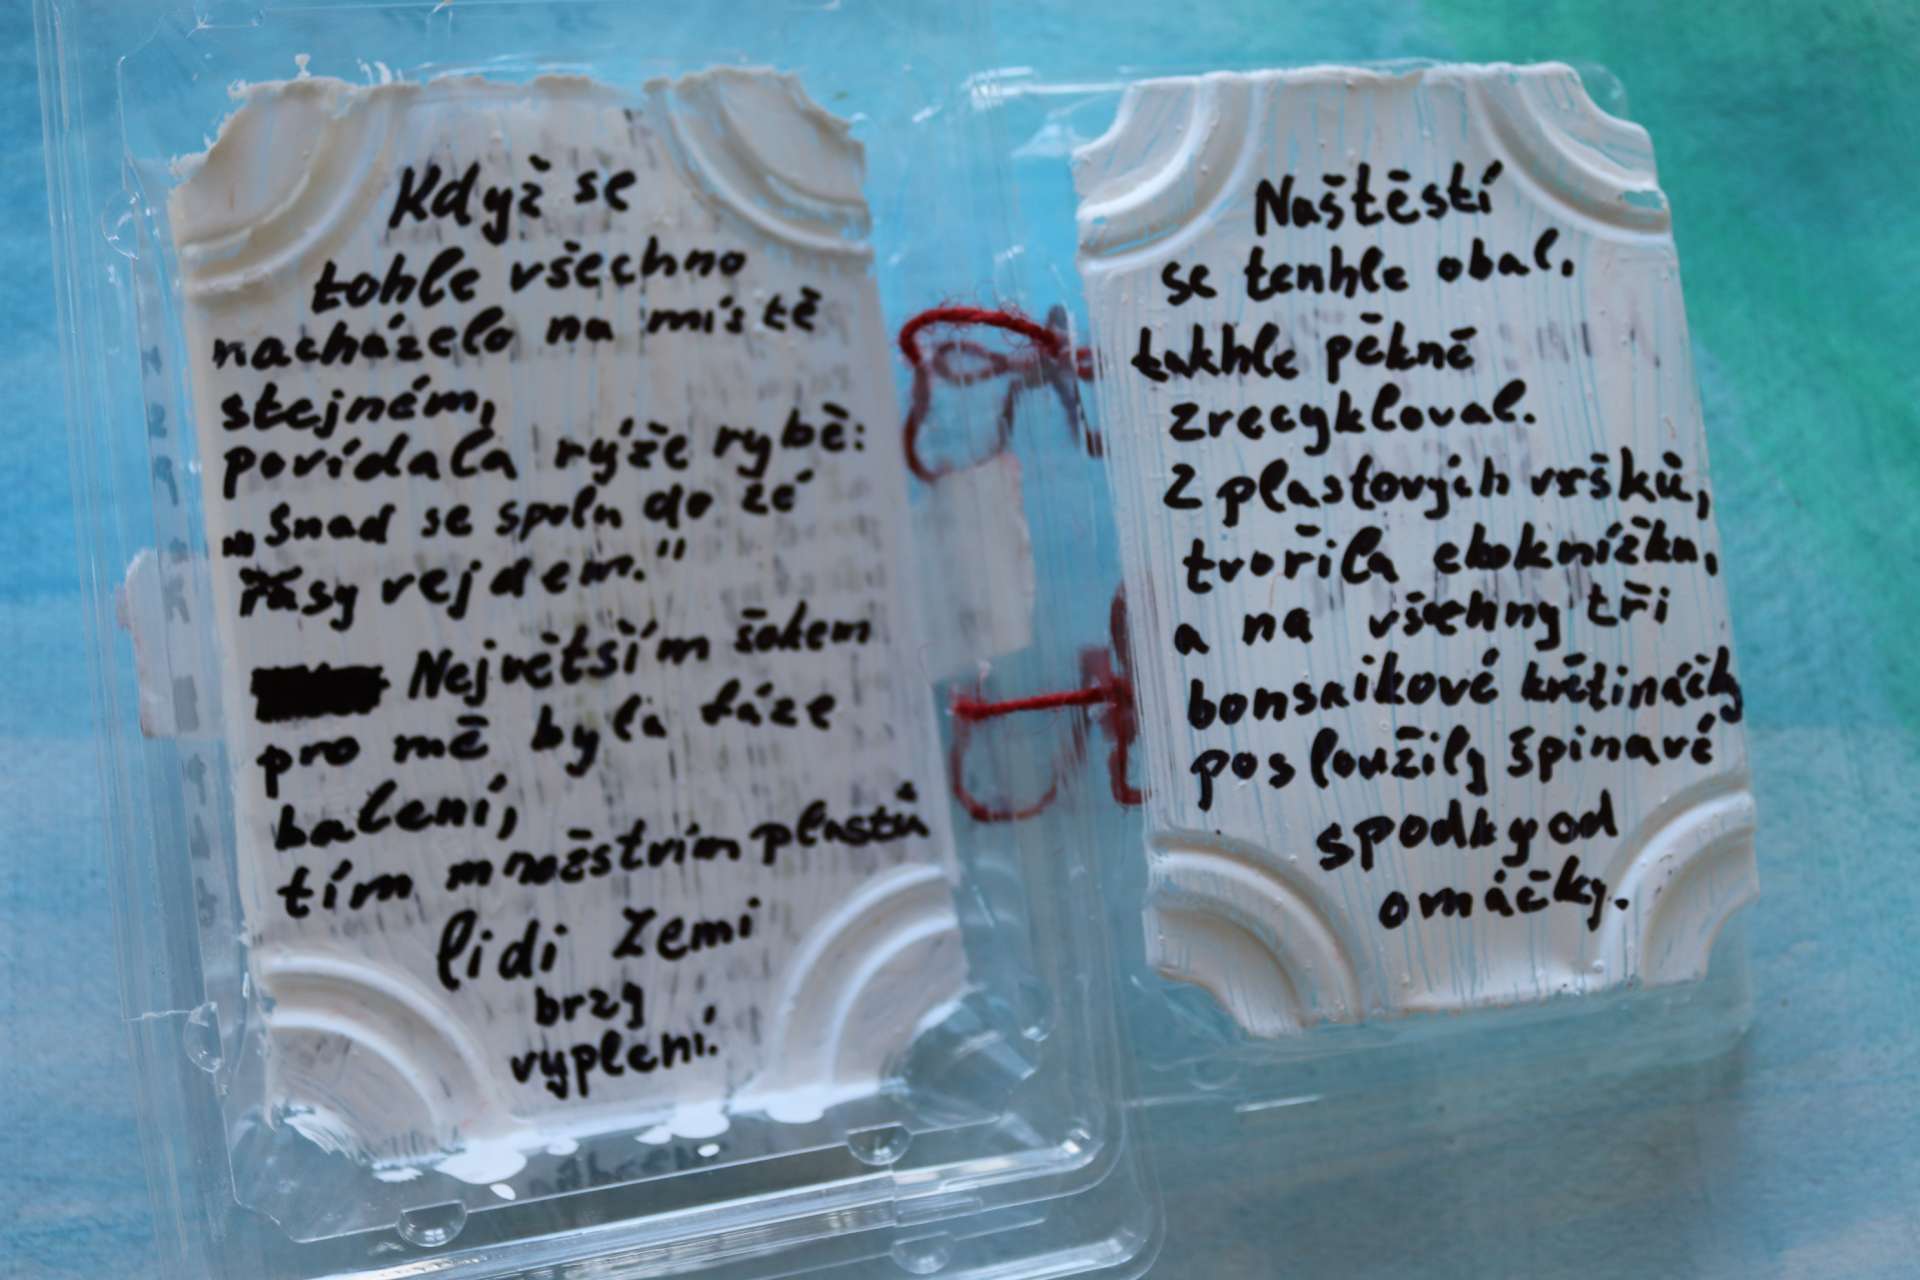 Když se
tohle všechno
nacházelo na místě
stejném,
povídala rýže rybě:
„Snad se spolu do té
řasy vejdem."
Největším šokem
pro mě byla fáze
balení,
tím množstvím plastů
lidi Zemi
brzy
vyplení.
Naštěstí
se tenhle obal.
takhle pěkně
zrecykloval.
Z plastových vršků,
tvořila ekoknížku,
a na všechny tři
bonsaikové květináčky
posloužily špinavé
spodky od
omáčky.